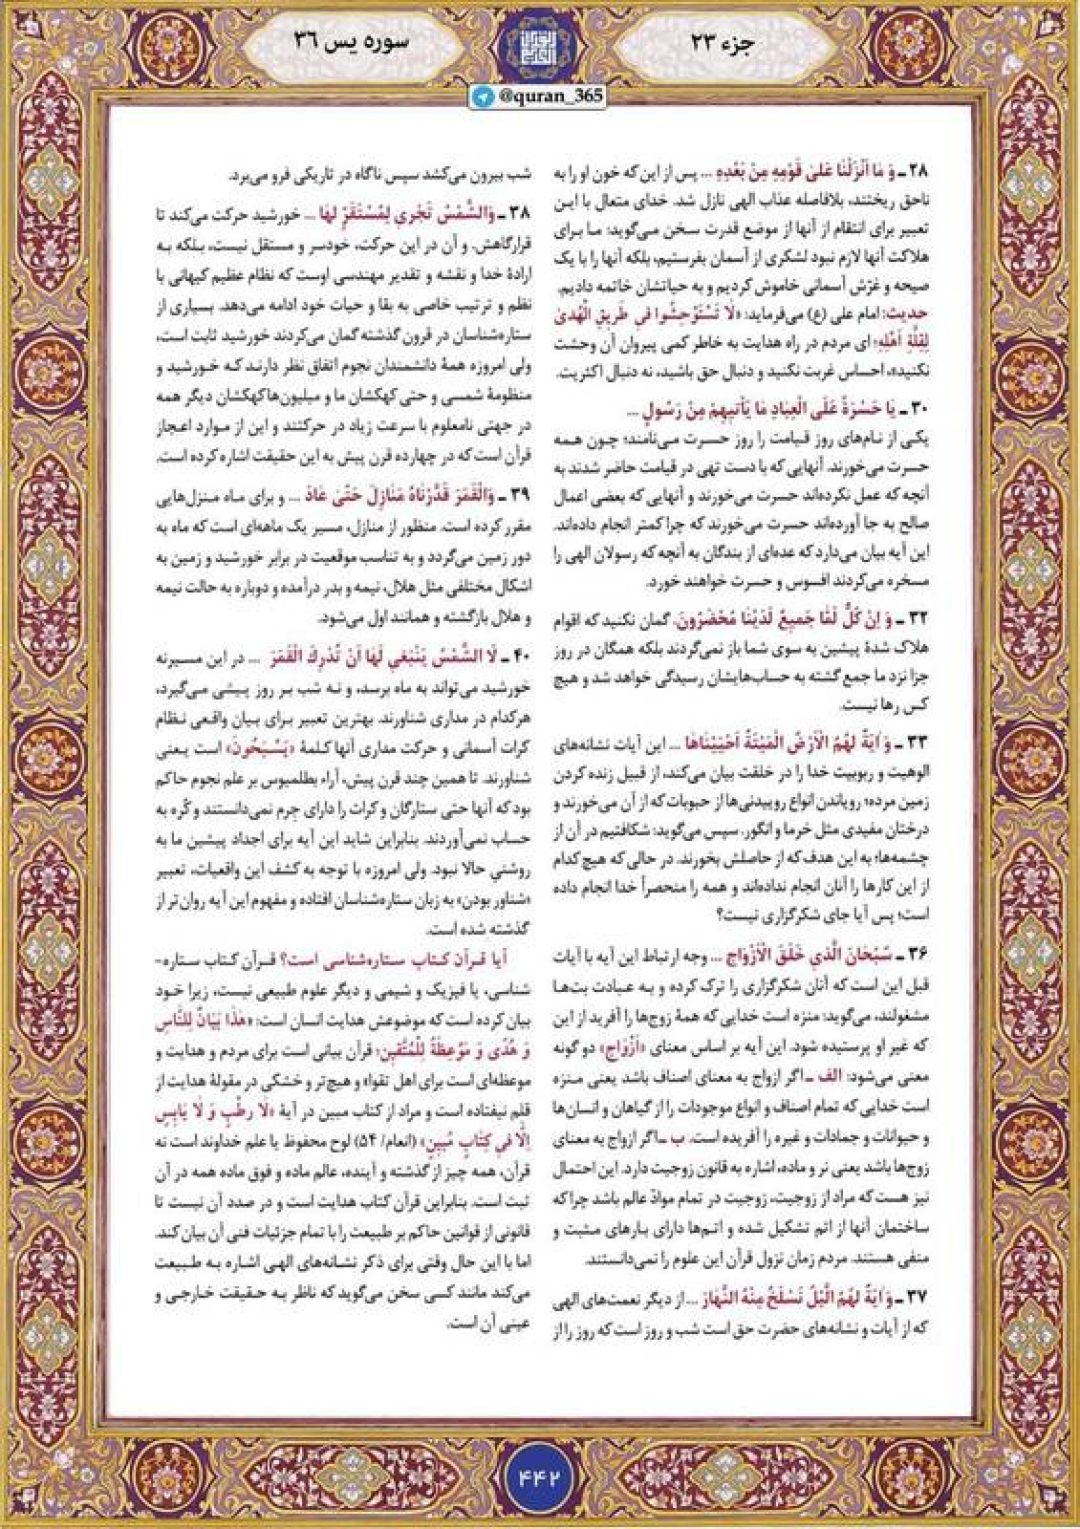 جزء ۲۳
سوره یس ۳۶
@quran_365
۲۸ ـ وَ مَا أَنْزَلْنَا عَلىٰ قَوْمِهِ مِنْ بَعْدِهِ ... پس از این‌که خون او را به
ناحق ریختند، بلافاصله عذاب الهی نازل شد. خدای متعال با این
تعبیر برای انتقام از آنها از موضع قدرت سخن می‌گوید: ما برای
هلاکت آنها لازم نبود لشکری از آسمان بفرستیم، بلکه آنها را با یک
صیحه و غرّش آسمانی خاموش کردیم و به حیاتشان خاتمه دادیم.
حدیث: امام علی (ع) می‌فرماید: «لَا تَسْتَوْحِشُوا فِی طَرِیقِ الْهُدىٰ
لِقِلَّةِ أَهْلِهِ؛ ای مردم در راه هدایت به خاطر کمی پیروان آن وحشت
نکنید»، احساس غربت نکنید و دنبال حق باشید، نه دنبال اکثریت.
۳۰ ـ یَا حَسْرَةً عَلَی الْعِبَادِ مَا یَأْتِیهِمْ مِنْ رَسُولٍ ...
یکی از نام‌های روز قیامت را روز حسرت می‌نامند؛ چون همه
حسرت می‌خورند. آنهایی که با دست تهی در قیامت حاضر شدند به
آنچه که عمل نکرده‌اند حسرت می‌خورند و آنهایی که بعضی اعمال
صالح به جا آورده‌اند حسرت می‌خورند که چرا کمتر انجام داده‌اند.
این آیه بیان می‌دارد که عده‌ای از بندگان به آنچه که رسولان الهی را
مسخره می‌کردند افسوس و حسرت خواهند خورد.
۳۲ ـ وَ إِنْ کُلٌّ لَمَّا جَمِیعٌ لَدَیْنَا مُحْضَرُونَ. گمان نکنید که اقوام
هلاک شدهٔ پیشین به سوی شما باز نمی‌گردند بلکه همگان در روز
جزا نزد ما جمع گشته به حساب‌هایشان رسیدگی خواهد شد و هیچ
کس رها نیست.
۳۳ ـ وَ آیَةٌ لَهُمُ الْأَرْضُ الْمَیْتَةُ أَحْیَیْنَاهَا ... این آیات نشانه‌های
الوهیت و ربوبیت خدا را در خلقت بیان می‌کند، از قبیل زنده کردن
زمین مرده؛ رویاندن انواع روییدنی‌ها از حبوبات که از آن می‌خورند و
درختان مفیدی مثل خرما و انگور. سپس می‌گوید: شکافتیم در آن از
چشمه‌ها؛ به این هدف که از حاصلش بخورند. در حالی که هیچ کدام
از این کارها را آنان انجام نداده‌اند و همه را منحصراً خدا انجام داده
است؛ پس آیا جای شکرگزاری نیست؟
۳۶ ـ سُبْحَانَ الَّذِی خَلَقَ الْأَزْوَاجَ ... وجه ارتباط این آیه با آیات
قبل این است که آنان شکرگزاری را ترک کرده و به عبادت بت‌ها
مشغولند، می‌گوید: منزه است خدایی که همهٔ زوج‌ها را آفرید از این
که غیر او پرستیده شود. این آیه بر اساس معنای «أَزْوَاج» دو گونه
معنی می‌شود: الف ـ اگر ازواج به معنای اصناف باشد یعنی منزه
است خدایی که تمام اصناف و انواع موجودات را از گیاهان و انسان‌ها
و حیوانات و جمادات و غیره را آفریده است. ب ـ اگر ازواج به معنای
زوج‌ها باشد یعنی نر و ماده، اشاره به قانون زوجیت دارد. این احتمال
نیز هست که مراد از زوجیت، زوجیت در تمام موادّ عالم باشد چرا که
ساختمان آنها از اتم تشکیل شده و اتم‌ها دارای بارهای مثبت و
منفی هستند. مردم زمان نزول قرآن این علوم را نمی‌دانستند.
۳۷ ـ وَ آیَةٌ لَهُمُ الَّیْلُ نَسْلَخُ مِنْهُ النَّهَارَ ... از دیگر نعمت‌های الهی
که از آیات و نشانه‌های حضرت حق است شب و روز است که روز را از
شب بیرون می‌کشد سپس ناگاه در تاریکی فرو می‌برد.
۳۸ ـ وَالشَّمْسُ تَجْرِی لِمُسْتَقَرٍّ لَهَا ... خورشید حرکت می‌کند تا
قرارگاهش، و آن در این حرکت، خودسر و مستقل نیست، بلکه به
ارادهٔ خدا و نقشه و تقدیر مهندسی اوست که نظام عظیم کیهانی با
نظم و ترتیب خاصی به بقا و حیات خود ادامه می‌دهد. بسیاری از
ستاره‌شناسان در قرون گذشته گمان می‌کردند خورشید ثابت است،
ولی امروزه همهٔ دانشمندان نجوم اتفاق نظر دارند که خورشید و
منظومهٔ شمسی و حتی کهکشان ما و میلیون‌ها کهکشان دیگر همه
در جهتی نامعلوم با سرعت زیاد در حرکتند و این از موارد اعجاز
قرآن است که در چهارده قرن پیش به این حقیقت اشاره کرده است.
۳۹ ـ وَالْقَمَرَ قَدَّرْنَاهُ مَنَازِلَ حَتّىٰ عَادَ ... و برای ماه منزل‌هایی
مقرر کرده است. منظور از منازل، مسیر یک ماهه‌ای است که ماه به
دور زمین می‌گردد و به تناسب موقعیت در برابر خورشید و زمین به
اشکال مختلفی مثل هلال، نیمه و بدر درآمده و دوباره به حالت نیمه
و هلال بازگشته و همانند اول می‌شود.
۴۰ ـ لَا الشَّمْسُ یَنْبَغِی لَهَا أَنْ تُدْرِکَ الْقَمَرَ ... در این مسیر نه
خورشید می‌تواند به ماه برسد، و نه شب بر روز پیشی می‌گیرد،
هرکدام در مداری شناورند. بهترین تعبیر برای بیان واقعی نظام
کرات آسمانی و حرکت مداری آنها کلمهٔ «یَسْبَحُونَ» است یعنی
شناورند. تا همین چند قرن پیش، آراء بطلمیوس بر علم نجوم حاکم
بود که آنها حتی ستارگان و کرات را دارای جرم نمی‌دانستند و کُره به
حساب نمی‌آوردند. بنابراین شاید این آیه برای اجداد پیشین ما به
روشنی حالا نبود. ولی امروزه با توجه به کشف این واقعیات، تعبیر
«شناور بودن» به زبان ستاره‌شناسان افتاده و مفهوم این آیه روان‌تر از
گذشته شده است.
آیا قرآن کتاب ستاره‌شناسی است؟ قرآن کتاب ستاره-
شناسی، یا فیزیک و شیمی و دیگر علوم طبیعی نیست، زیرا خود
بیان کرده است که موضوعش هدایت انسان است: «هٰذَا بَیَانٌ لِلنَّاسِ
وَ هُدًی وَ مَوْعِظَةٌ لِلْمُتَّقِینَ؛ قرآن بیانی است برای مردم و هدایت و
موعظه‌ای است برای اهل تقوا» و هیچ‌تر و خشکی در مقولهٔ هدایت از
قلم نیفتاده است و مراد از کتاب مبین در آیهٔ «لَا رَطْبٍ وَ لَا یَابِسٍ
إِلَّا فِی کِتَابٍ مُبِینٍ» (انعام/ ۵۴) لوح محفوظ یا علم خداوند است نه
قرآن، همه چیز از گذشته و آینده، عالم ماده و فوق ماده همه در آن
ثبت است. بنابراین قرآن کتاب هدایت است و در صدد آن نیست تا
قانونی از قوانین حاکم بر طبیعت را با تمام جزئیات فنی آن بیان کند.
اما با این حال وقتی برای ذکر نشانه‌های الهی اشاره به طبیعت
می‌کند مانند کسی سخن می‌گوید که ناظر به حقیقت خارجی و
عینی آن است.
۴۴۲